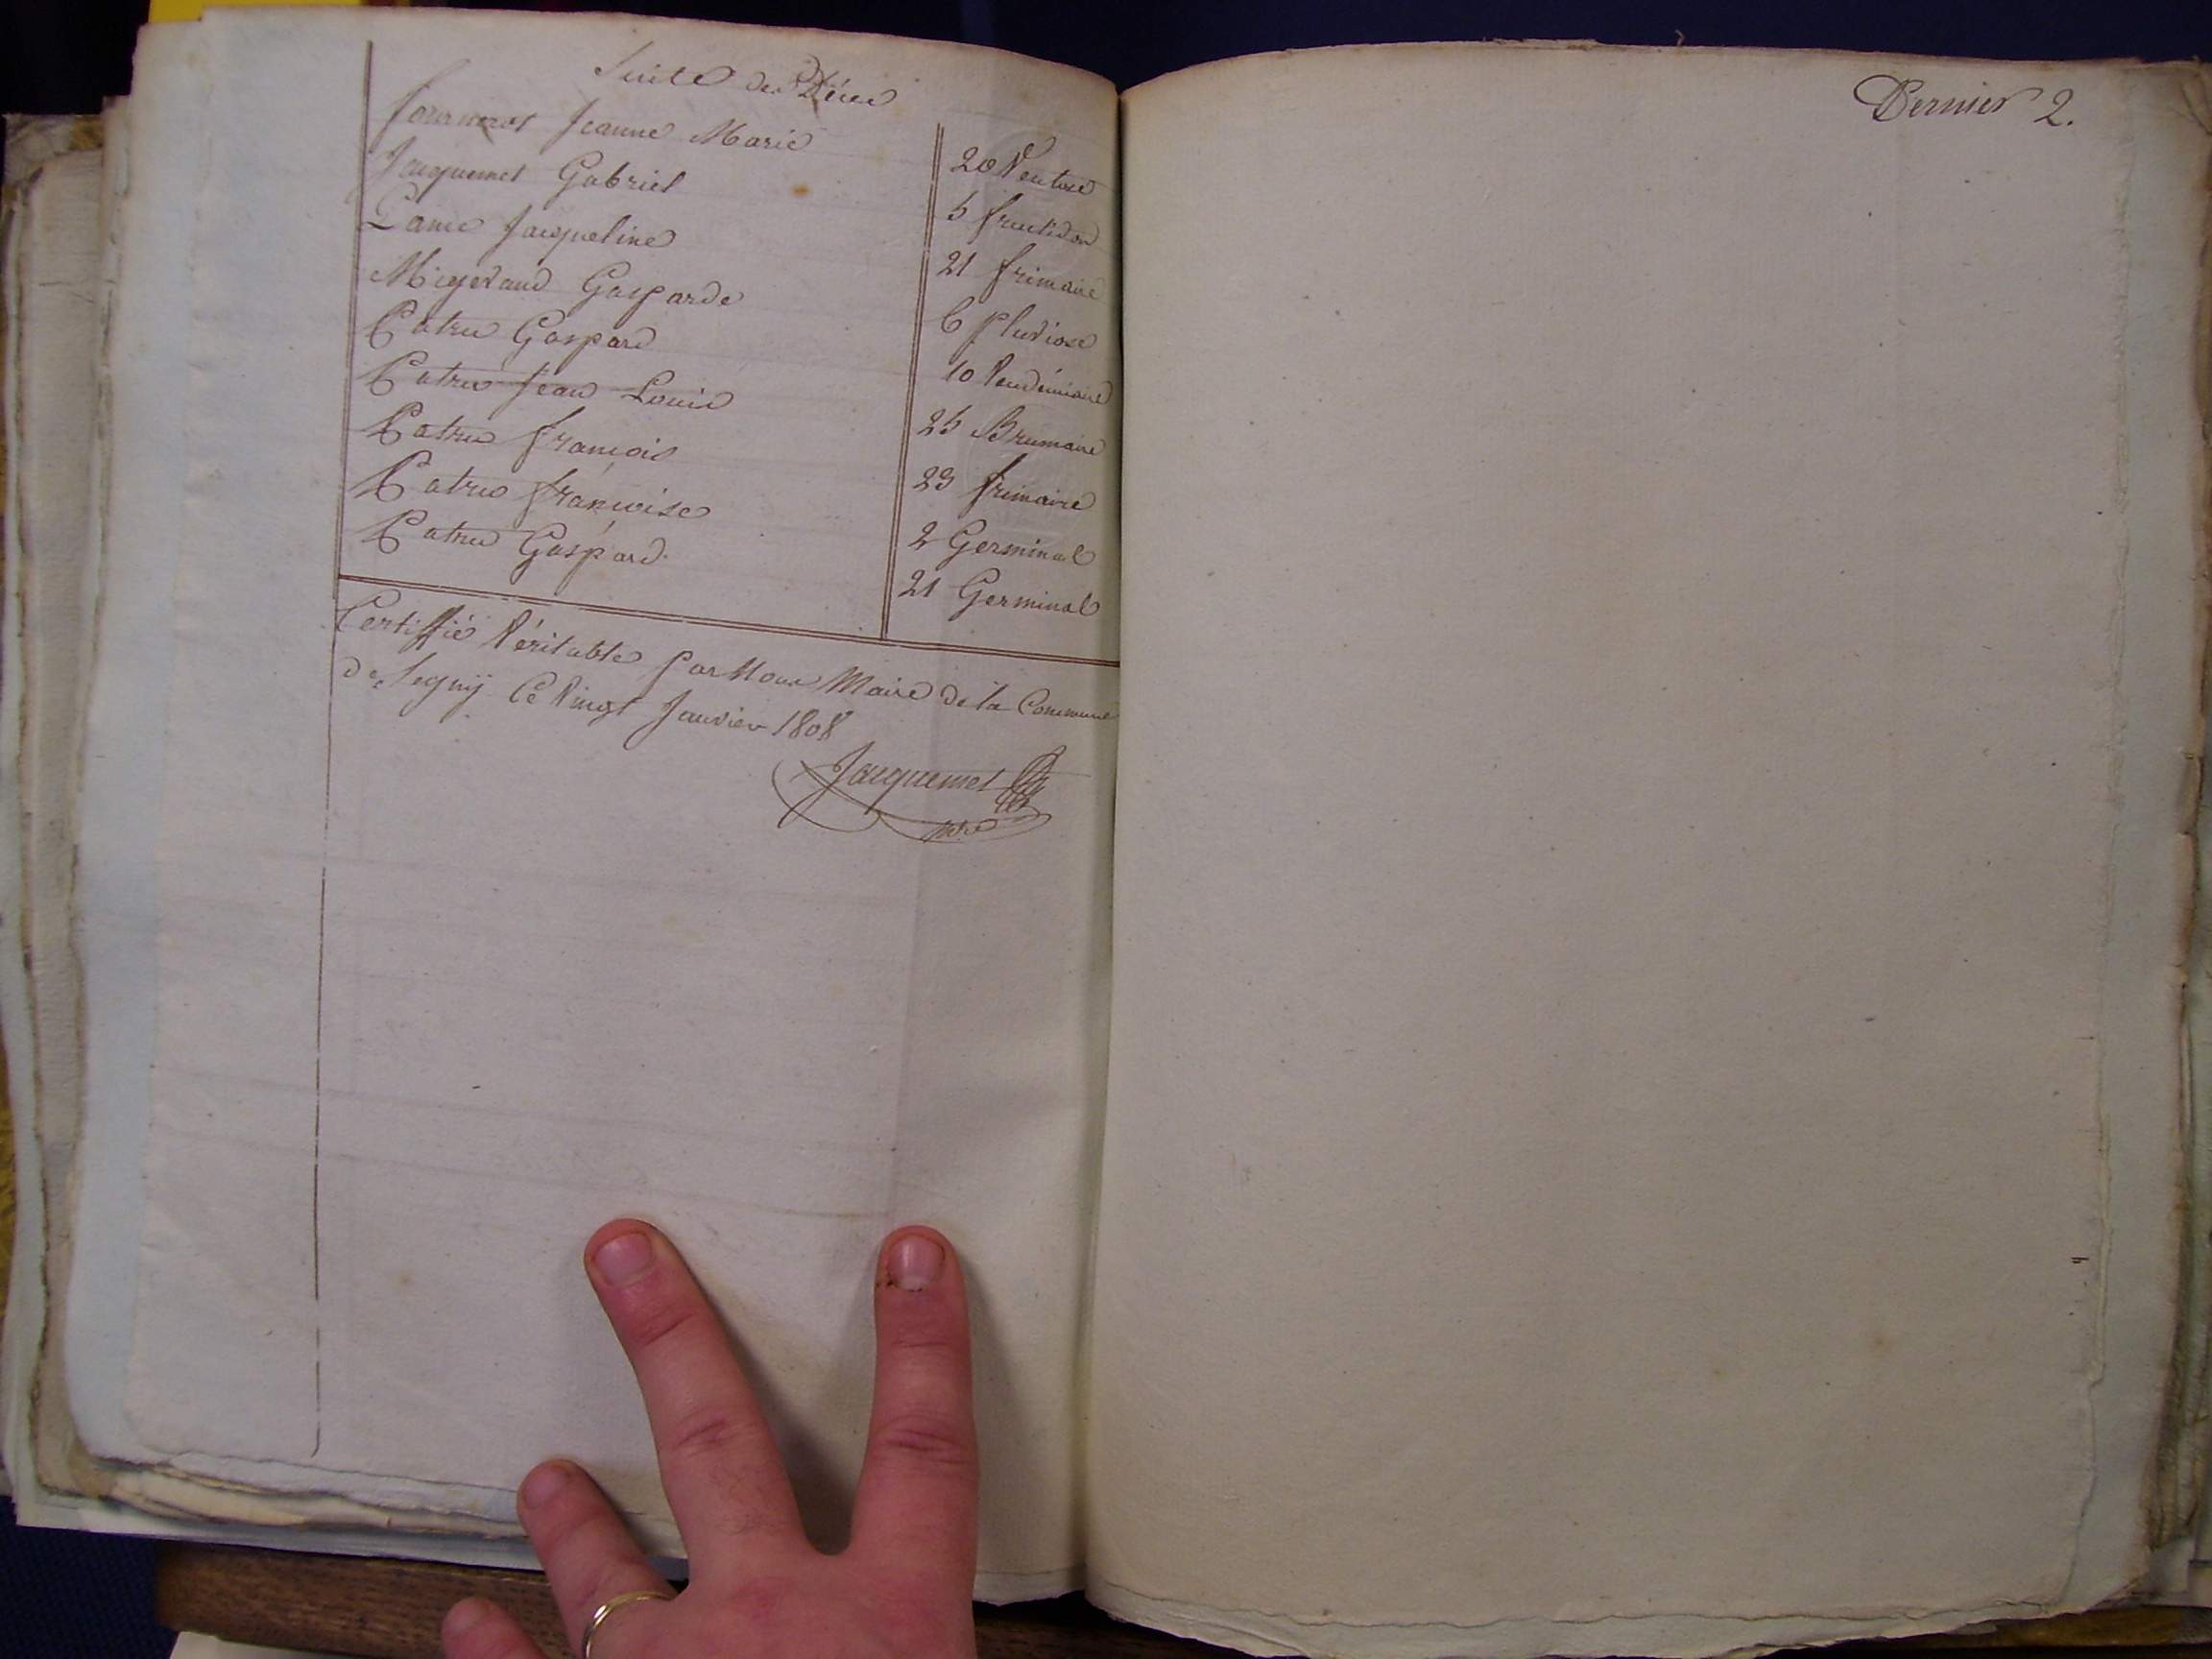 Suite des Décès
Fournier Jeanne Marie 20 Ventose
Jacquemet Gabriel 5 fructidor
Lance Jacqueline 21 frimaire
Migerand Gasparde 6 Pluviose
Patru Gaspard 10 Vendémiaire
Patru Jean Louis 25 Brumaire
Patru françois 23 frimaire
Patru françoise 2 Germinal
Patru Gaspard 21 Germinal
Certiffié Véritable par Nous Maire de la Commune
de Segny Ce Vingt Janvier 1808
Jacquemet
Dernier 2.